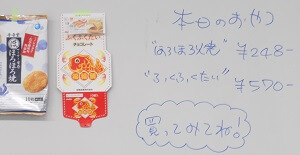 ほろほろ焼
ふくふくたい
チョコレート
本日のおやつ
"ほろほろ焼" ¥248-
"ふくふくたい" ¥570-
買ってみてね!